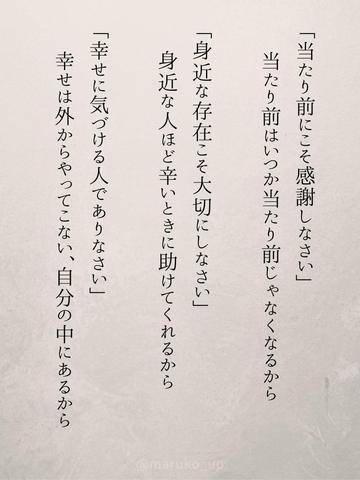 「当たり前にこそ感謝しなさい」
当たり前はいつか当たり前じゃなくなるから
「身近な存在こそ大切にしなさい」
身近な人ほど辛いときに助けてくれるから
「幸せに気づける人でありなさい」
幸せは外からやってこない、自分の中にあるから
@maruko_up